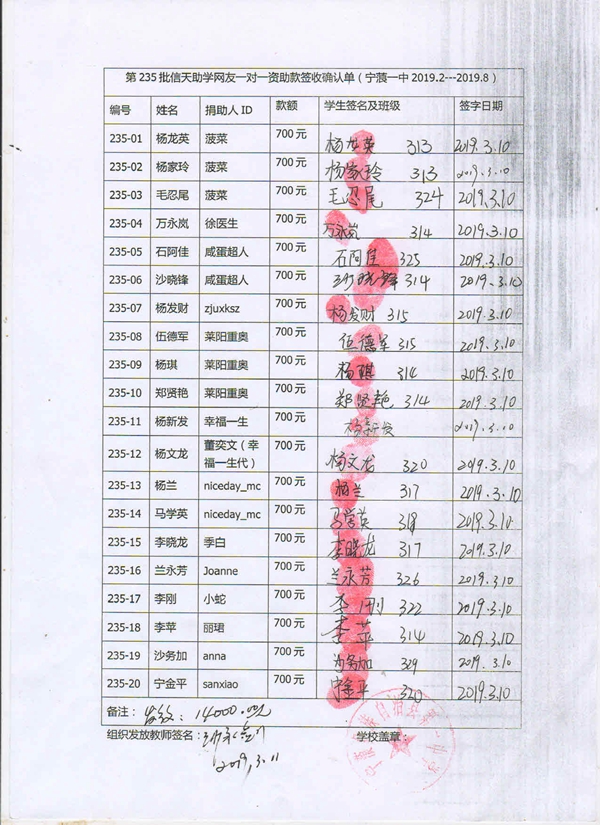 第235批信天助学网友一对一资助款签收确认单（宁蒗一中2019.2---2019.8）
编号 姓名 捐助人ID 款额 学生签名及班级 签字日期
235-01 杨龙英 菠菜 700元 杨龙英 313 2019.3.10
235-02 杨家玲 菠菜 700元 杨家玲 313 2019.3.10
235-03 毛忍尾 菠菜 700元 毛忍尾 324 2019.3.10
235-04 万永岚 徐医生 700元 万永岚 314 2019.3.10
235-05 石阿佳 咸蛋超人 700元 石阿佳 325 2019.3.10
235-06 沙晓锋 咸蛋超人 700元 沙晓锋 314 2019.3.10
235-07 杨发财 zjuxksz 700元 杨发财 315 2019.3.10
235-08 伍德军 莱阳重奥 700元 伍德军 315 2019.3.10
235-09 杨琪 莱阳重奥 700元 杨琪 314 2019.3.10
235-10 郑贤艳 莱阳重奥 700元 郑贤艳 314 2019.3.10
235-11 杨新发 幸福一生 700元 杨新发 2019.3.10
235-12 杨文龙 董奕文（幸 700元 杨文龙 320 2019.3.10
福一生代）
235-13 杨兰 niceday_mc 700元 杨兰 317 2019.3.10
235-14 马学英 niceday_mc 700元 马学英 318 2019.3.10
235-15 李晓龙 季白 700元 李晓龙 317 2019.3.10
235-16 兰永芳 Joanne 700元 兰永芳 326 2019.3.10
235-17 李刚 小蛇 700元 李刚 322 2019.3.10
235-18 李苹 丽珺 700元 李苹 314 2019.3.10
235-19 沙务加 anna 700元 沙务加 329 2019.3.10
235-20 宁金平 sanxiao 700元 宁金平 320 2019.3.10
备注： 发放：14000.00元
组织发放教师签名： 学校盖章：
2019.3.11